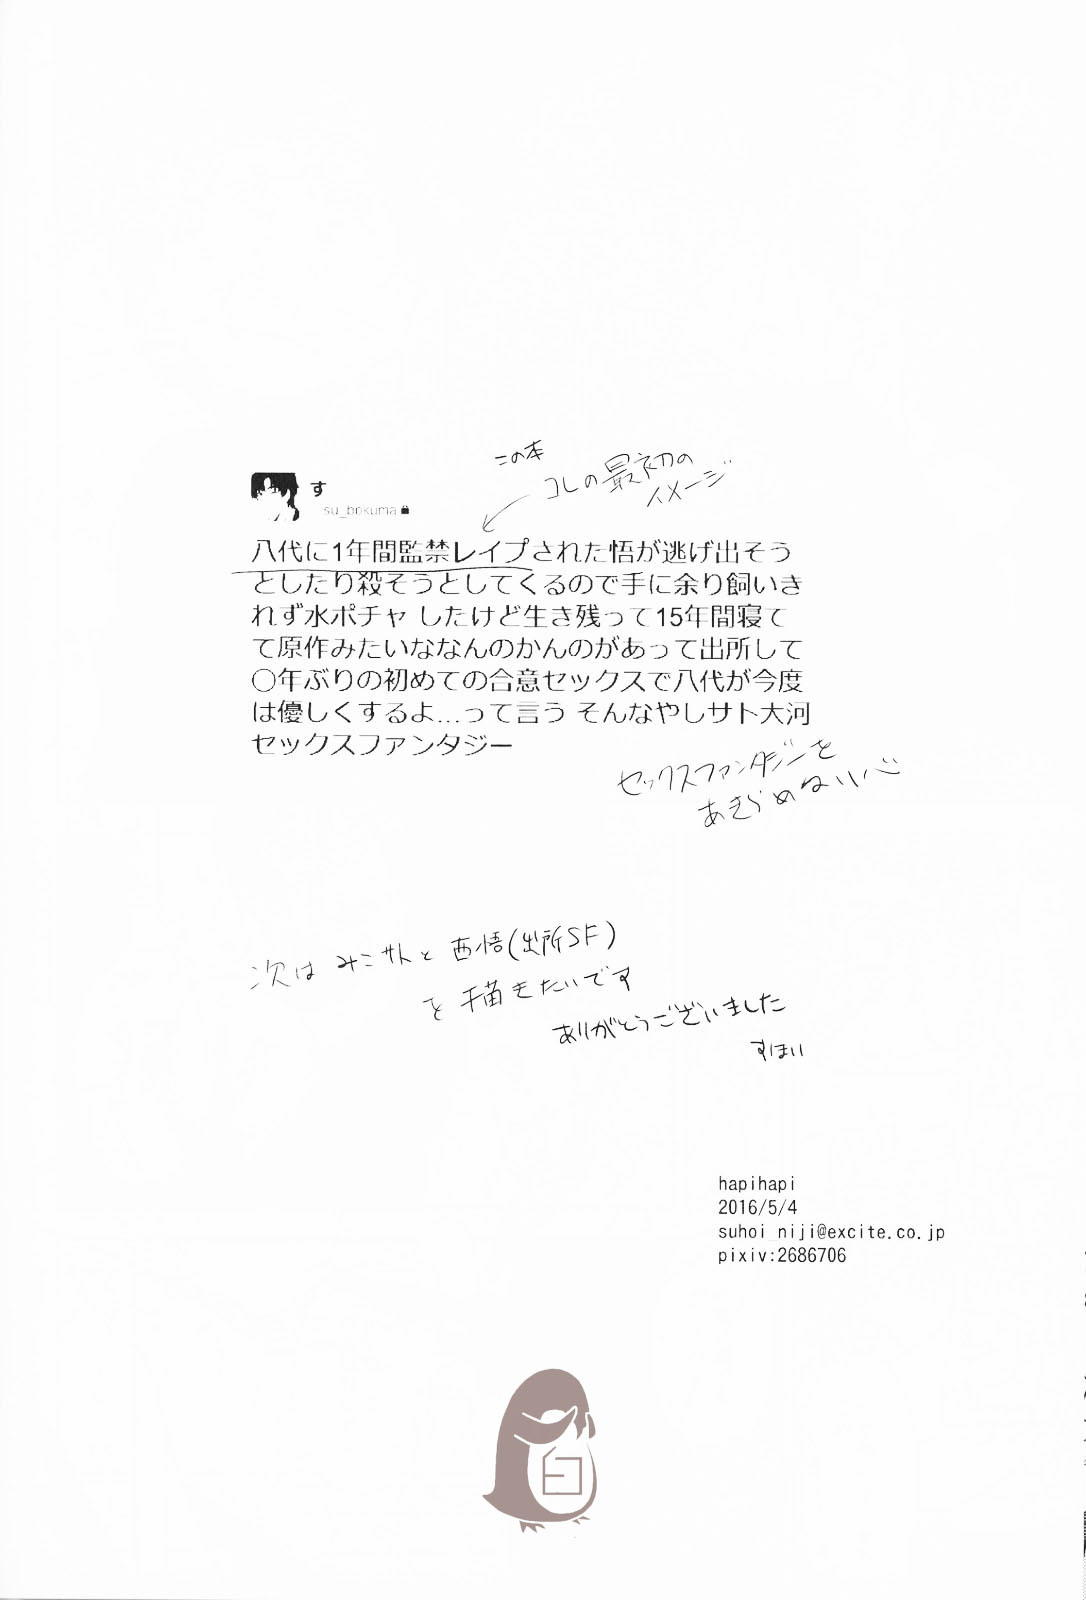 この本
コレの最初の
イメージ
す
su_bokuma
八代に1年間監禁レイプされた悟が逃げ出そう
としたり殺そうとしてくるので手に余り飼いき
れず水ポチャ したけど生き残って15年間寝て
て原作みたいななんのかんのがあって出所して
〇年ぶりの初めての合意セックスで八代が今度
は優しくするよ…って言う そんなやしサト大河
セックスファンタジー
セックスファンタジーを
あきらめない心
次は みこサトと 西悟(出所SF)
を 描きたいです
ありがとうございました
すほい
hapihapi
2016/5/4
suhoi_niji@excite.co.jp
pixiv:2686706